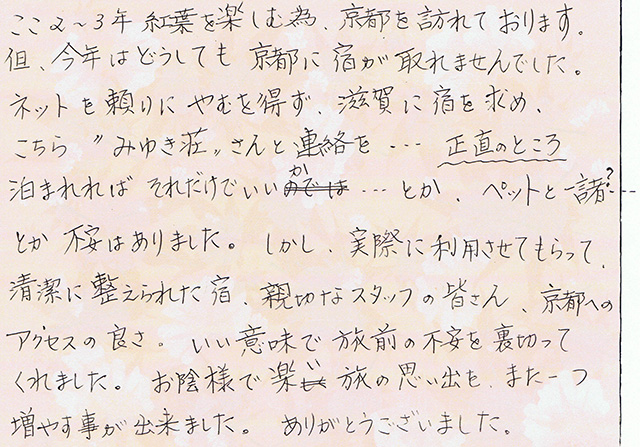 ここ2~3年 紅葉を楽しむ為、京都を訪れております。
但、今年はどうしても 京都に 宿が 取れませんでした。
ネットを頼りに やむを得ず、滋賀に 宿を求め、
こちら 〝みゆき荘〟さんと 連絡を … 正直のところ
泊まれれば それだけでいいか … とか、ペットと一諸?
とか 不安はありました。しかし、実際に利用させてもらって、
清潔に整えられた宿、親切なスタッフの皆さん、京都への
アクセスの良さ。いい意味で 旅前の不安を裏切って
くれました。お陰様で楽しい 旅の思い出を、また一つ
増やす事が出来ました。ありがとうございました。